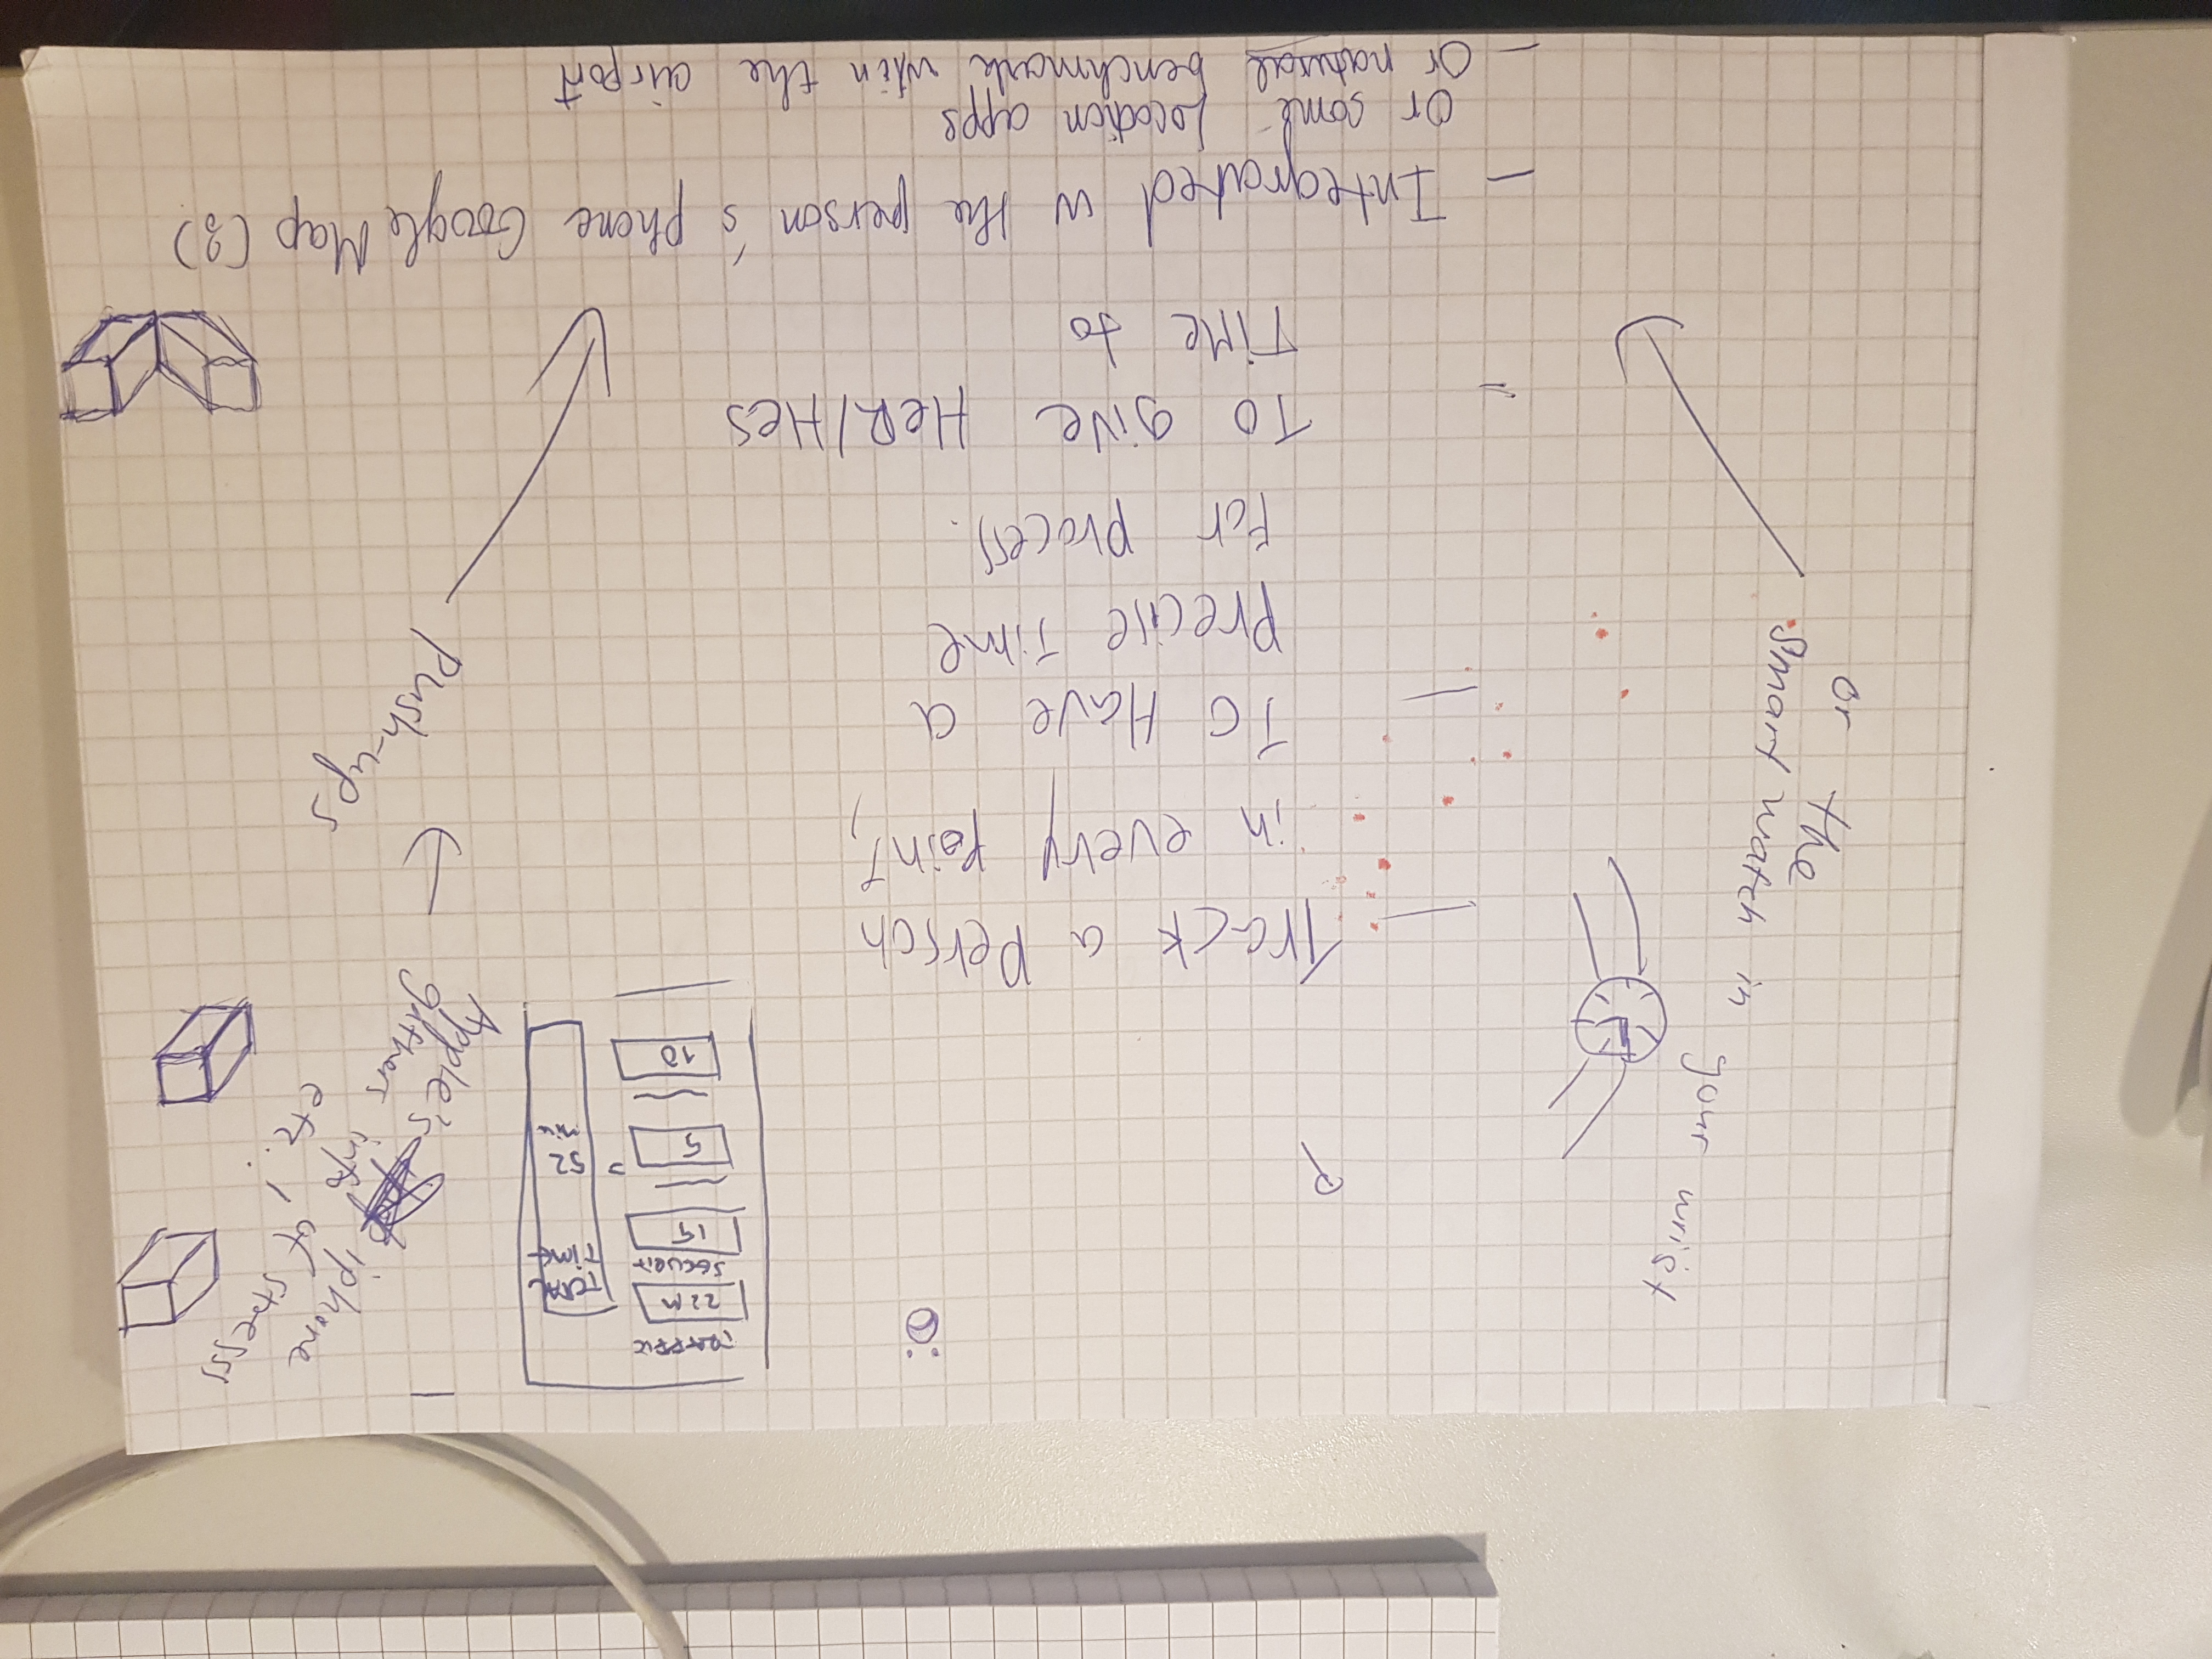 TRAFFIC
22M
SECURIT
15
5
10
TOTAL
TIME
= 52
min
Apple's iphone
gathers info of stress,
etc..
Push-ups
or the
Smart watch in your wrist
— Track a Person
in every point,
— To Have a
precise Time
For process.
= To give HER/HES
Time to
— Integrated w the person's phone Google Map (?)
or some Location apps
— or natural benchmark wtin the airport